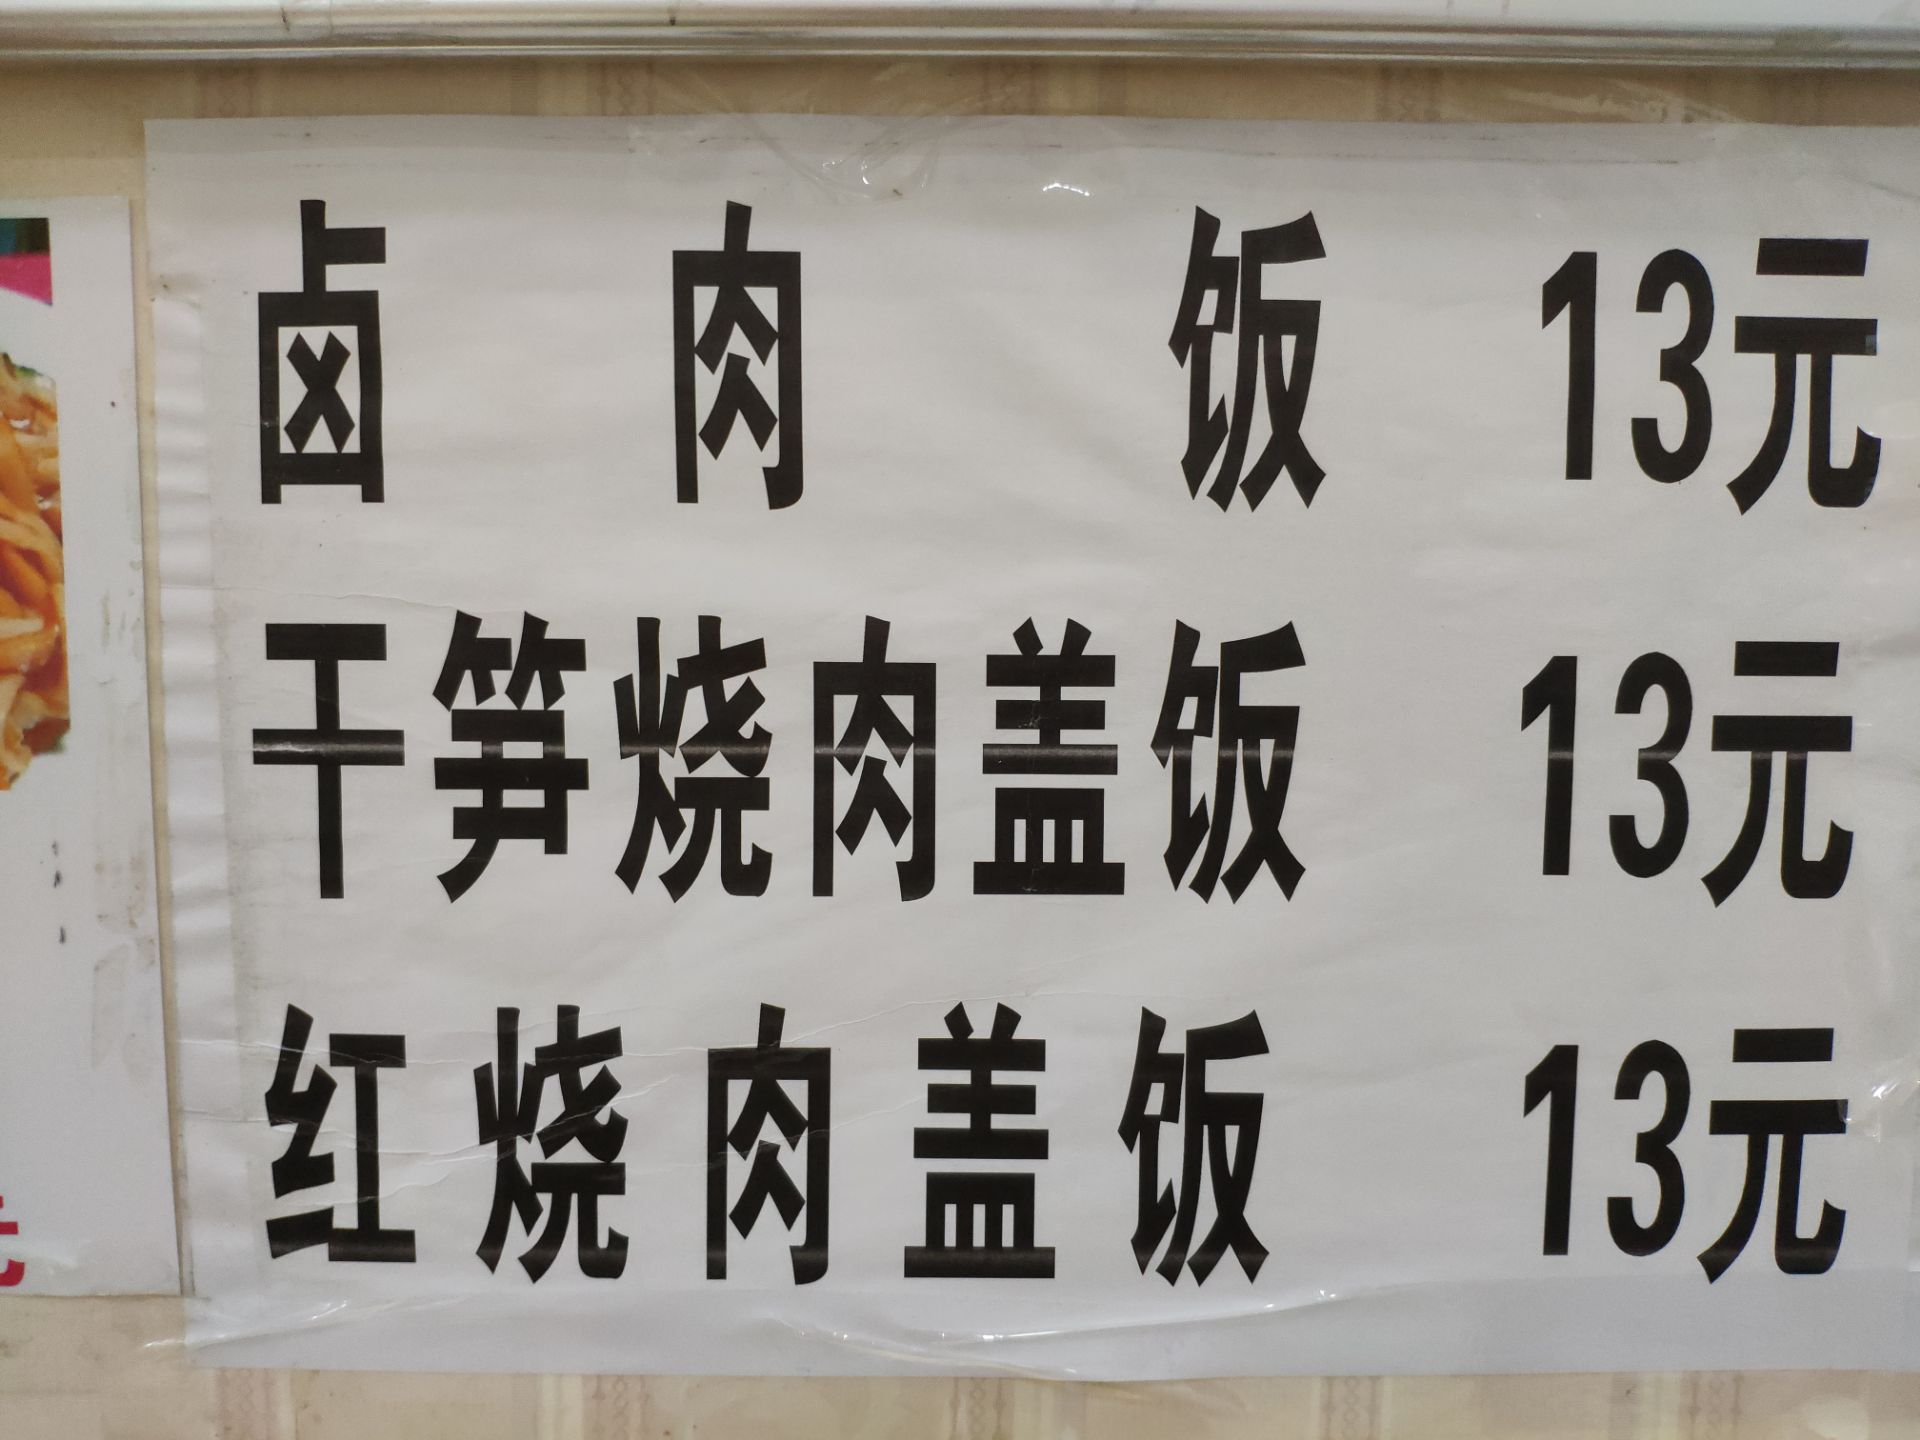 卤肉饭 13元
干笋烧肉盖饭 13元
红烧肉盖饭 13元